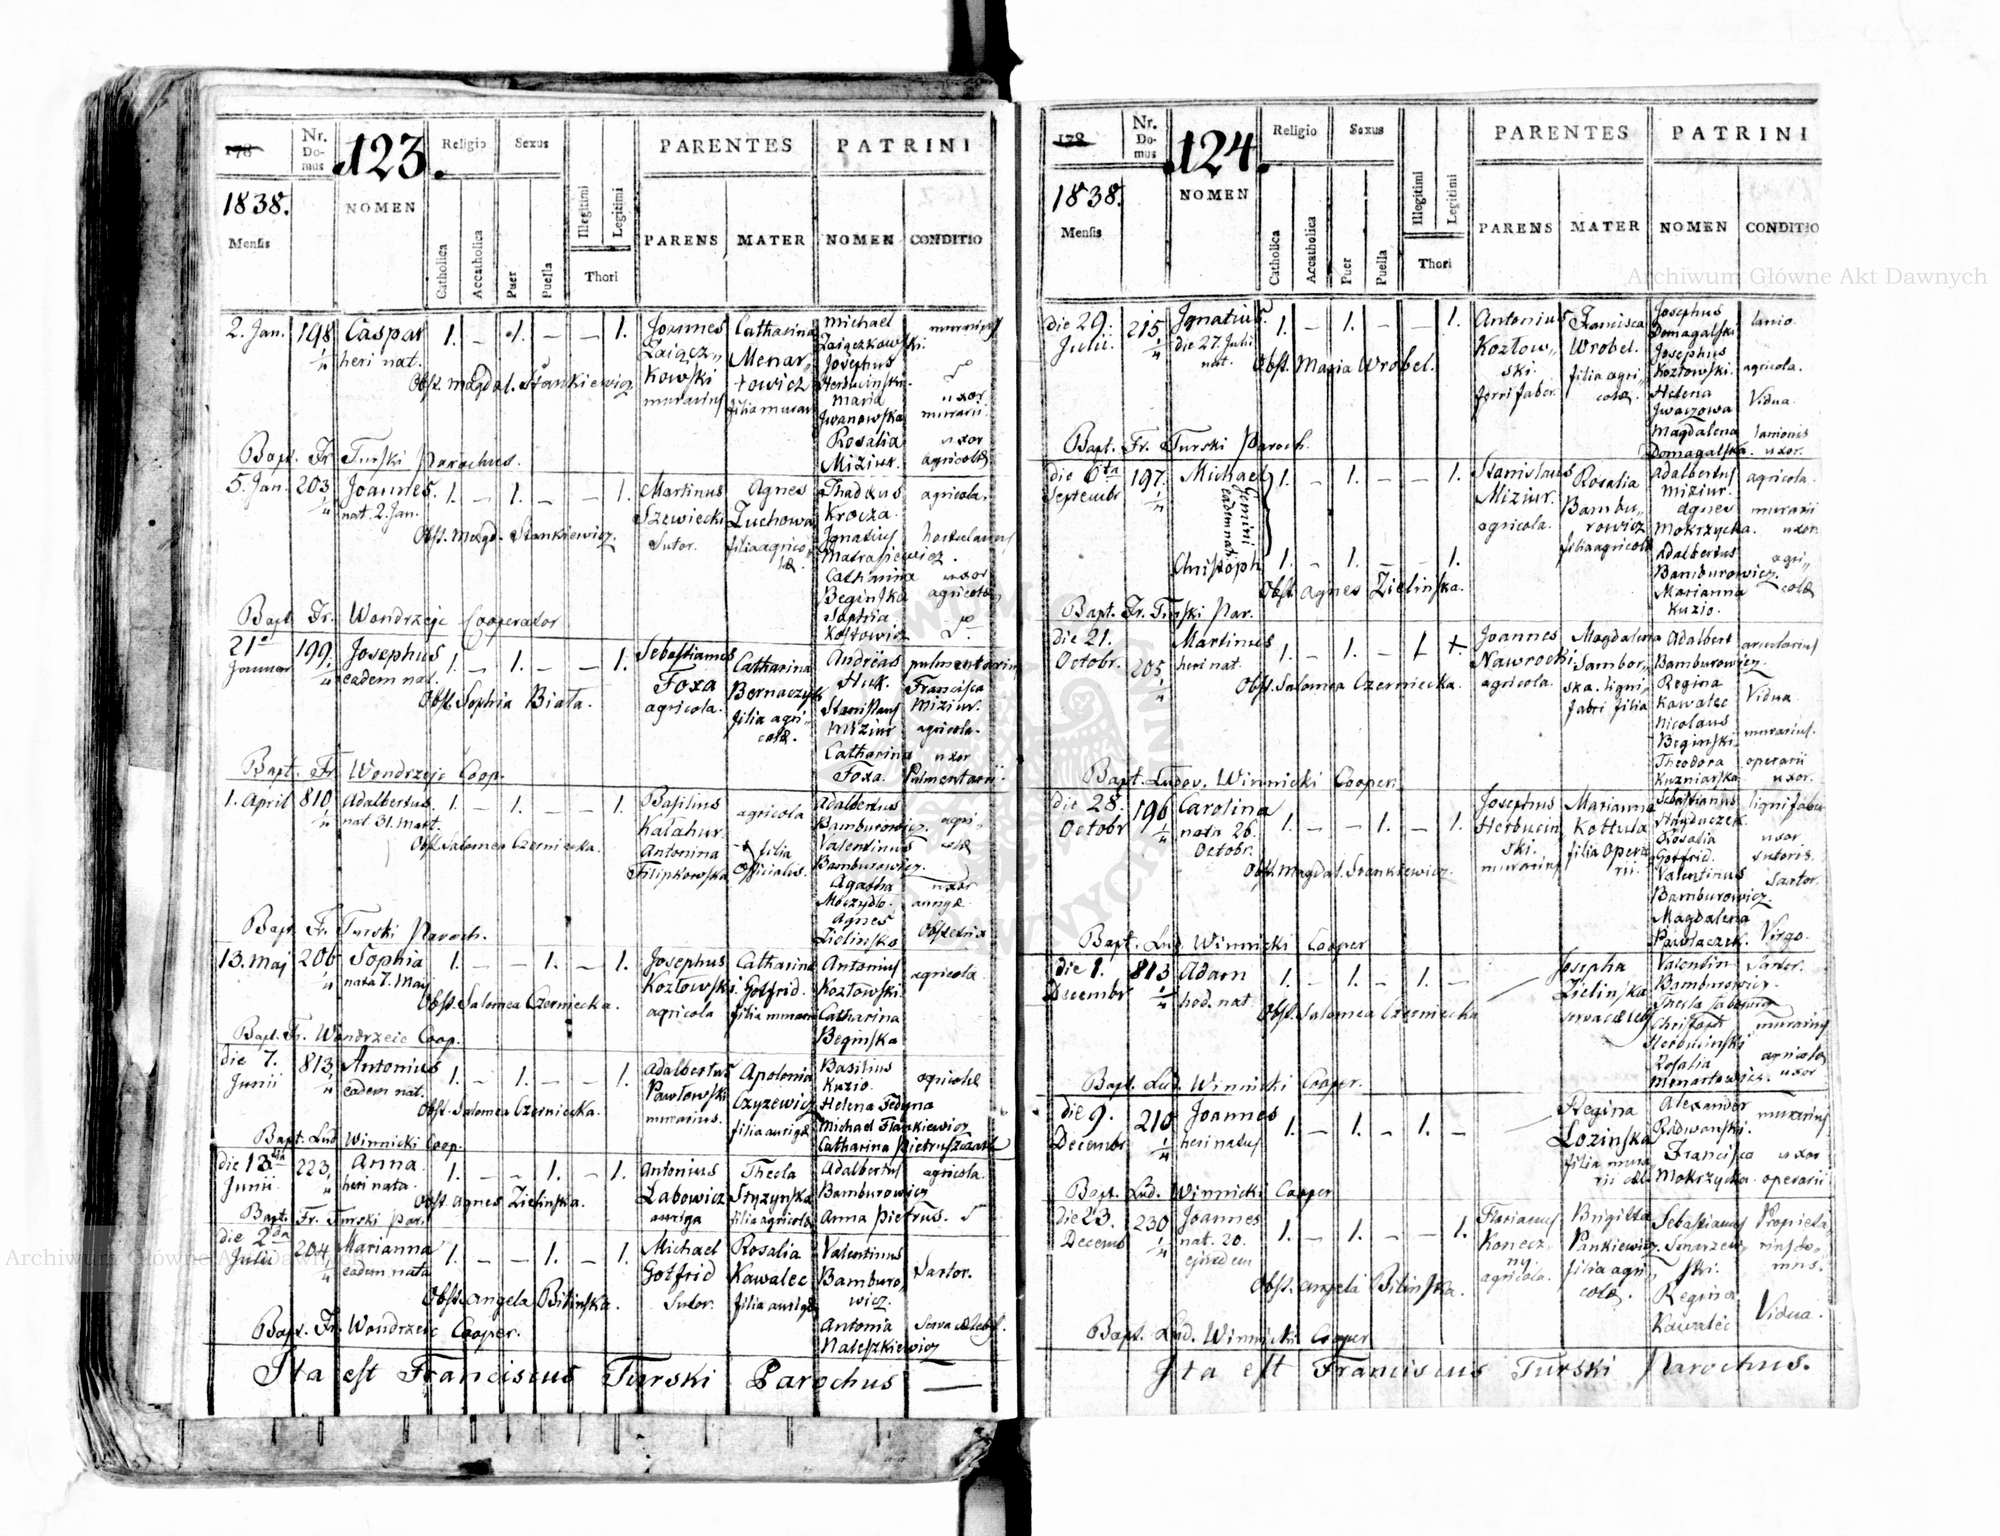 178
Nr. Domus
123.
Religio
Sexus
PARENTES
PATRINI
1838.
Mensis
NOMEN
Catholica
Accatholica
Puer
Puella
Illegitimi
Legitimi
Thori
PARENS
MATER
NOMEN
CONDITIO
2. Jan. 198 Caspar 1. – 1. – – 1. Joannes Catharina Michael murarius
heri nat. Zaiącz„ Menar„ Zaiączkowski.
Obst. Magdal. Stankiewicz kowski towicz Josephus
murarius filia murar. Herbucinski.
Maria uxor
Iwanowska murarii
Rosalia uxor
Bapt. Fr. Turski Parochus. Miziur. agricolæ
5. Jan. 203 Joannes. 1. – 1. – – 1. Martinus Agnes Thadeus agricola.
nat. 2. Jan. Szewiecki Zuchowa Krocza.
Obst. Magd. Stankiewicz. Sutor. filia agricolæ Ignatius hortulanus
Matrasiewicz.
Catharina uxor
Beginska agricolæ
Sophia
Bapt. Fr. Wondrzeic Cooperator Kostowicz
21a Januar 199. Josephus 1. – 1. – – 1. Sebastianus Catharina Andreas pulmentarius
eadem nat. Foxa Bernaczyk Huk. Francisca
Obst. Sophia Biała. agricola. filia agri„ Stanislaus Miziur.
colæ. Miziur agricola.
Catharina uxor
Bapt. Fr. Wondrzeic Coop. Foxa. Pulmentarii.
1. April 810 Adalbertus. 1. – 1. – – 1. Basilius agricola Adalbertus agri„
nat 31. Mart. Kałahur Bamburowicz. colæ
Obst. Salomea Czerniecka. Antonina filia Valentinus
Filipkowska officialis. Bamburowicz.
Agatha uxor
Moczydło. aurigæ
Agnes
Bapt. Fr. Turski Paroch. Zielinska Obstetrix
13. Maj 206 Sophia 1. – – 1. – 1. Josephus Catharina Antonius agricola
nata 7. Maj Kozłowski. Gotfrid. Kozłowski.
Obst. Salomea Czerniecka. agricola filia murarii Catharina
Bapt. Fr. Wondrzeic Coop. Beginska
die 7. Junii 813 Antonius 1. – 1. – – 1. Adalbertus Apolonia Basilius agricolæ
eadem nat. Pawłowski Czyzewicz Kuzio.
Obst. Salomea Czerniecka. murarius. filia aurigæ Helena Fedyna
Michael Stankiewicz
Bapt. Lud. Winnicki Coop. Catharina Pietruszczak
die 13tia Junii 223 Anna 1. – – 1. – 1. Antonius Thecla Adalbertus agricola.
heri nata. Łabowicz Styzynska Bamburowicz
Obst. Agnes Zielinska. auriga filia agricolæ Anna Pietrus.
Bapt. Fr. Turski Par.
die 2da Julii 204 Marianna 1. – – 1. – 1. Michael Rosalia Valentinus Sartor.
eadem nata Gotfrid Kawalec Bamburo„
Obst. Angela Bilinska. Sutor. filia aurigæ wicz.
Antonia Serva cælebs.
Bapt. Fr. Wondrzeic Cooper. Nateszkiewicz
Ita est Franciscus Turski Parochus —
178
Nr. Domus
124.
Religio
Sexus
PARENTES
PATRINI
1838.
Mensis
NOMEN
Catholica
Accatholica
Puer
Puella
Illegitimi
Legitimi
Thori
PARENS
MATER
NOMEN
CONDITIO
die 29. Julii. 215 Ignatius. 1. – 1. – – 1. Antonius Francisca Josephus lanio.
die 27. Julii nat. Kozłow„ Wrobel. Domagalski
Obst. Maria Wrobel. ski. filia agri„ Josephus
ferri faber. colæ. Kozłowski. agricola.
Helena
Iwaczowa Vidua.
Magdalena lanionis
Bapt. Fr. Turski Paroch. Domagalska. uxor.
die 6ta Septembr 197 Michael 1. – 1. – – 1. Stanislaus Rosalia Adalbertus agricola.
Gemini eadem nati. Miziur. Bambu„ Miziur.
agricola. rowicz Agnes murarii
filia agricolæ Mokrzycka. uxor
Christoph 1. – 1. – – 1. Adalbertus agri„
Obst. Agnes Zielinska. Bamburowicz. colæ
Marianna
Bapt. Fr. Turski Par. Kuzio.
die 21. Octobr. 205 Martinus 1. – 1. – Joannes Magdalena Adalbert
heri nat. Nawrocki Sambor„ Bamburowicz.
Obst. Salomea Czerniecka. agricola. ska. ligni„ Regina Vidua
fabri filia Kawalec
Nicolaus murarius.
Beginski
Theodora operarii
Bapt. Ludov. Winnicki Cooper. Kuzniarska. uxor.
die 28. Octobr 196 Carolina 1. – – 1. – 1. Josephus Marianna Sebastianus lignifaber
nata 26. Octobr. Herbucin„ Kottula Hayduczek.
Obst. Magdal. Stankiewicz. ski. filia opera„ Rosalia uxor
murarius rii Gotfrid. sutoris.
Valentinus Sartor.
Bamburowicz.
Magdalena
Bapt. Lud. Winnicki Cooper Pawłaczek. Virgo.
die 1. Decembr 813 Adam 1. – 1. – 1. – Josepha Valentin Sartor.
hod. nat. Zielinska Bamburowicz.
Obst. Salomea Czerniecka serva cælebs Thecla
Christoph murarius
Herbucinski
Rosalia agricolæ
Bapt. Lud. Winnicki Cooper. Menartowicz. uxor
die 9. Decembr 210 Joannes 1. – 1. – 1. – Regina Alexander murarius
heri natus Lozinska Radwanski.
filia mura„ Francisca uxor
Bapt. Lud. Winnicki Cooper rii Mokrzycka. operarii
die 23. Decemb 230 Joannes 1. – 1. – – 1. Florianus Brigitta Sebastianus Proprieta„
nat. 20. ejusdem Konecz„ Pankiewicz. Smarzew„ rius do„
Obst. Angela Bilinska. ny. filia agri„ ski. mus.
agricola. colæ. Regina
Bapt. Lud. Winnicki Cooper Kawalec Vidua.
Ita est Franciscus Turski Parochus.
Archiwum Główne Akt Dawnych
Archiwum Główne Akt Dawnych